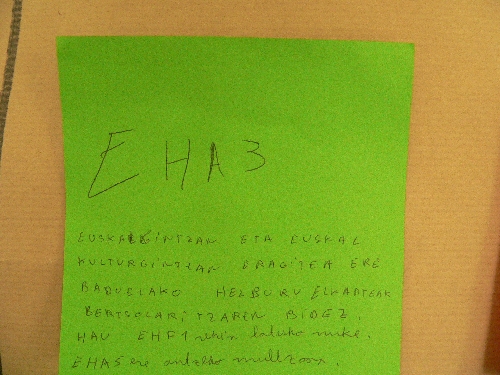 EHA3
EUSKALGINTZAN ETA EUSKAL
KULTURGINTZAN ERAGITEA ERE
BADUELAKO HELBURU ELKARTEAK
BERTSOLARITZAREN BIDEZ.
HAU EHF1 rekin lotuko nuke.
EHA5 ere antzeko